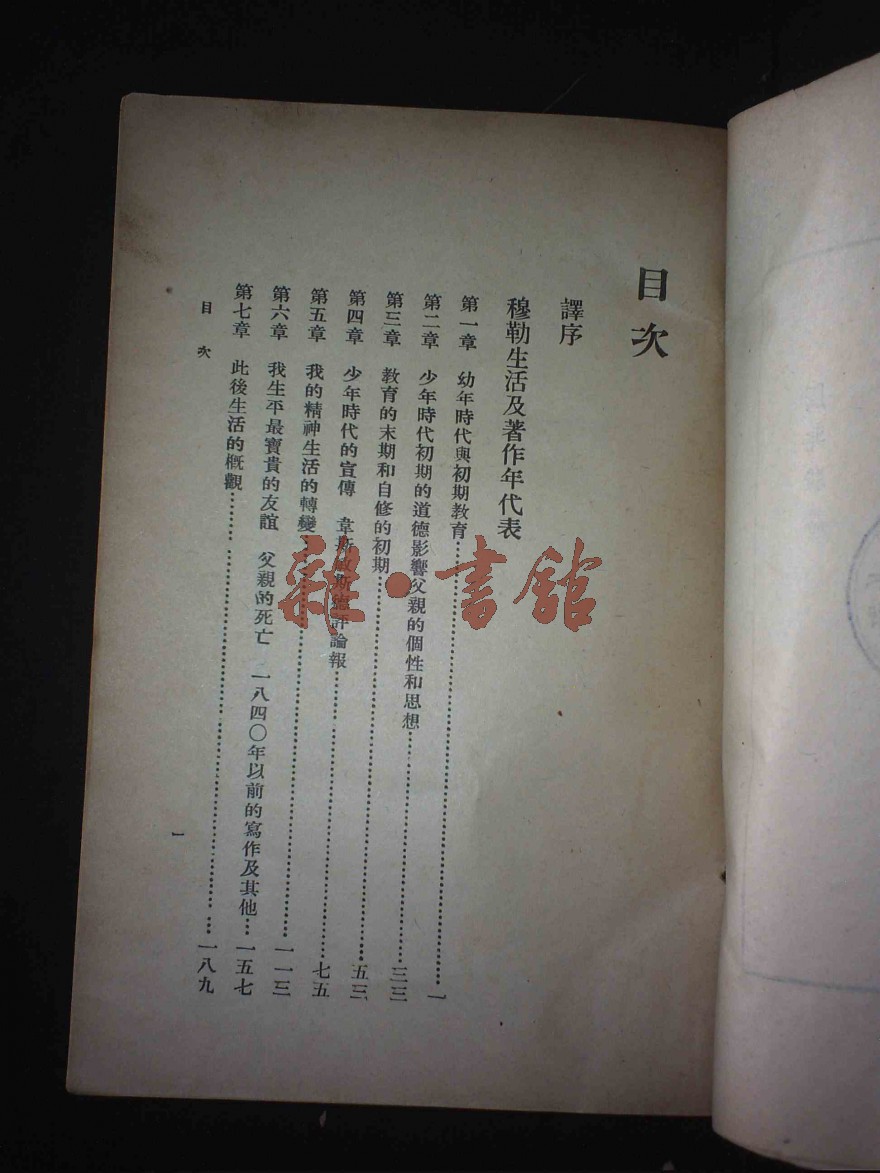 目次
譯序
穆勒生活及著作年代表
第一章　幼年時代與初期教育……一
第二章　少年時代初期的道德影響父親的個性和思想……三三
第三章　教育的末期和自修的初期……五三
第四章　少年時代的宣傳　韋斯敏斯德評論報……七五
第五章　我的精神生活的轉變……一一三
第六章　我生平最寶貴的友誼　父親的死亡　一八四〇年以前的寫作及其他……一五七
第七章　此後生活的概觀……一八九
目次
一
雜·書館